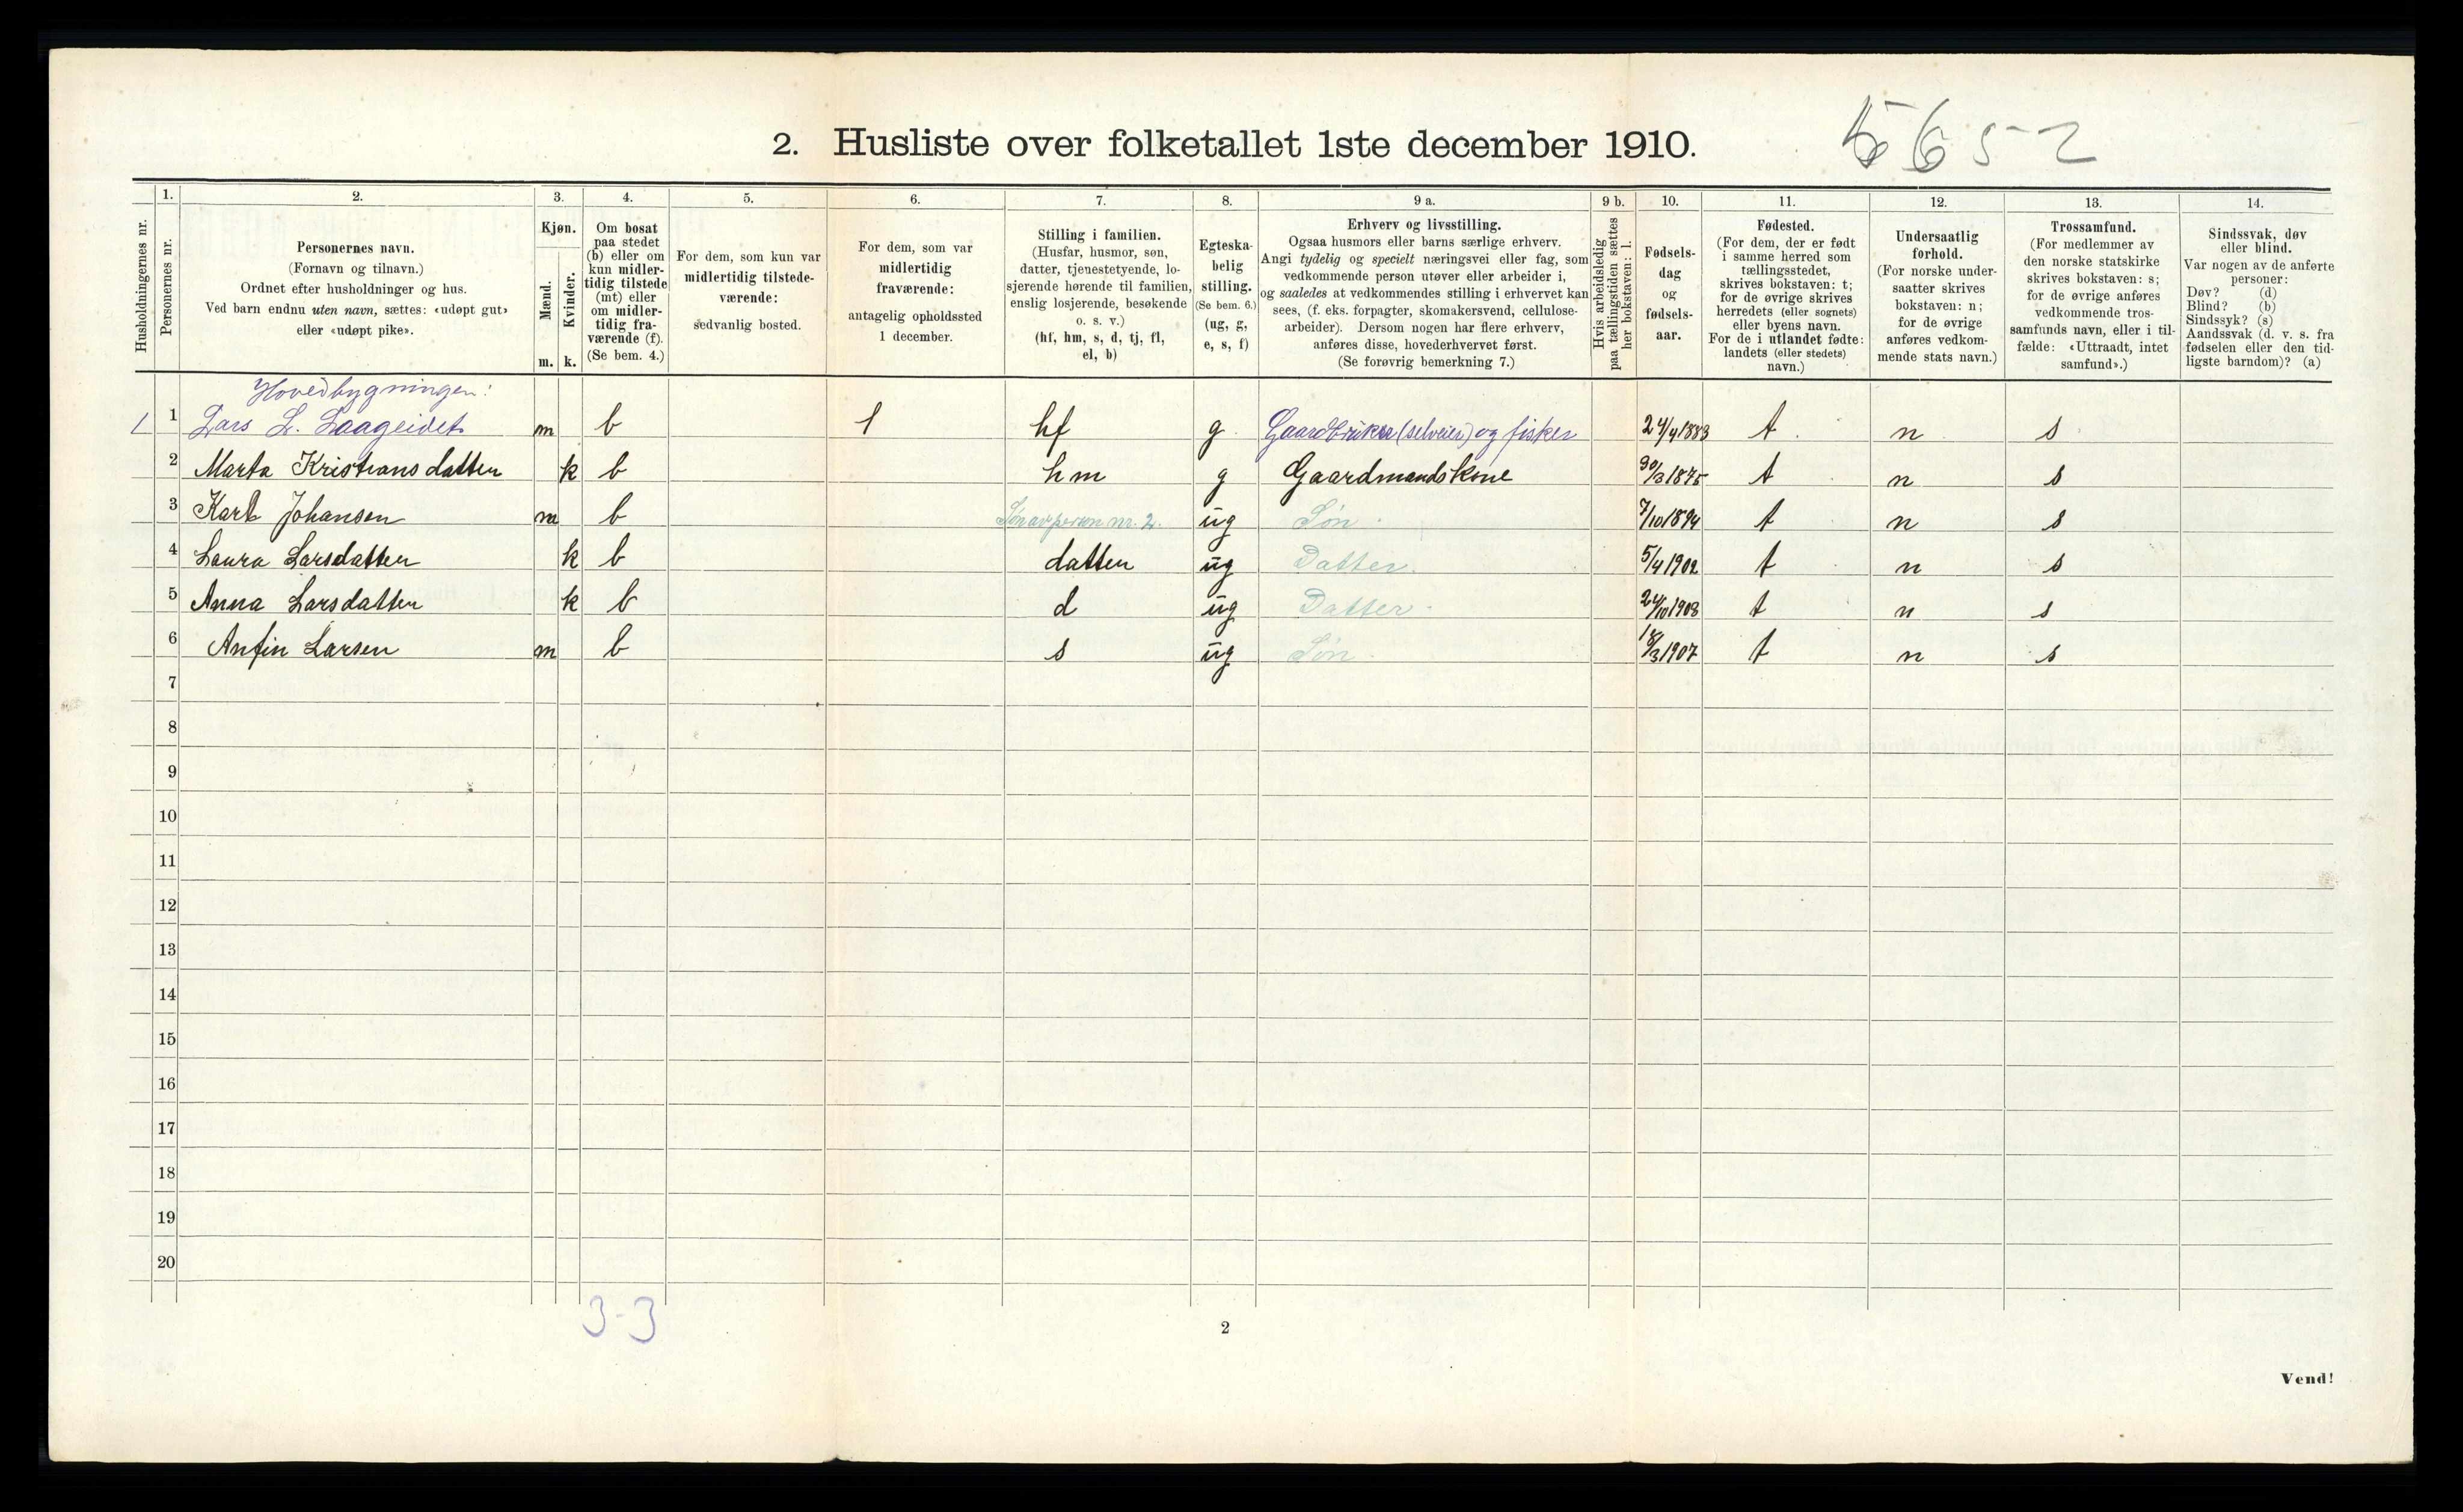 2. Husliste over folketallet 1ste december 1910.
5652
Husholdningernes nr.
1.
Personernes nr.
2.
Personernes navn.
(Fornavn og tilnavn.)
Ordnet efter husholdninger og hus.
Ved barn endnu uten navn, sættes: «udøpt gut»
eller «udøpt pike».
3.
Kjøn.
Mænd.
Kvinder.
m. k.
4.
Om bosat
paa stedet
(b) eller om
kun midler-
tidig tilstede
(mt) eller
om midler-
tidig fra-
værende (f).
(Se bem. 4.)
5.
For dem, som kun var
midlertidig tilstede-
værende:
sedvanlig bosted.
6.
For dem, som var
midlertidig
fraværende:
antagelig opholdssted
1 december.
7.
Stilling i familien.
(Husfar, husmor, søn,
datter, tjenestetyende, lo-
sjerende hørende til familien,
enslig losjerende, besøkende
o. s. v.)
(hf, hm, s, d, tj, fl,
el, b)
8.
Egteska-
belig
stilling.
(Se bem. 6.)
(ug, g,
e, s, f)
9 a.
Erhverv og livsstilling.
Ogsaa husmors eller barns særlige erhverv.
Angi tydelig og specielt næringsvei eller fag, som
vedkommende person utøver eller arbeider i,
og saaledes at vedkommendes stilling i erhvervet kan
sees, (f. eks. forpagter, skomakersvend, cellulose-
arbeider). Dersom nogen har flere erhverv,
anføres disse, hovederhvervet først.
(Se forøvrig bemerkning 7.)
9 b.
Hvis arbeidsledig
paa tællingstiden sættes
her bokstaven: l.
10.
Fødsels-
dag
og
fødsels-
aar.
11.
Fødested.
(For dem, der er født
i samme herred som
tællingsstedet,
skrives bokstaven: t;
for de øvrige skrives
herredets (eller sognets)
eller byens navn.
For de i utlandet fødte:
landets (eller stedets)
navn.)
12.
Undersaatlig
forhold.
(For norske under-
saatter skrives
bokstaven: n;
for de øvrige
anføres vedkom-
mende stats navn.)
13.
Trossamfund.
(For medlemmer av
den norske statskirke
skrives bokstaven: s;
for de øvrige anføres
vedkommende tros-
samfunds navn, eller i til-
fælde: «Uttraadt, intet
samfund».)
14.
Sindssvak, døv
eller blind.
Var nogen av de anførte
personer:
Døv? (d)
Blind? (b)
Sindssyk? (s)
Aandssvak (d. v. s. fra
fødselen eller den tid-
ligste barndom)? (a)
Hovedbygningen:
1 1 Lars L. Laageidet m b 1 hf g Gaardbruker (selveier) og fisker 24/4 1883 t n s
2 Marta Kristiansdatter k b hm g Gaardmandskone 30/3 1875 t n s
3 Karl Johansen m b Søn av person nr. 2. ug Søn. 7/10 1894 t n s
4 Laura Larsdatter k b datter ug Datter. 5/4 1902 t n s
5 Anna Larsdatter k b d ug Datter. 24/10 1903 t n s
6 Anfin Larsen m b s ug Søn. 18/3 1907 t n s
7
8
9
10
11
12
13
14
15
16
17
18
19
20
3-3
2
Vend!